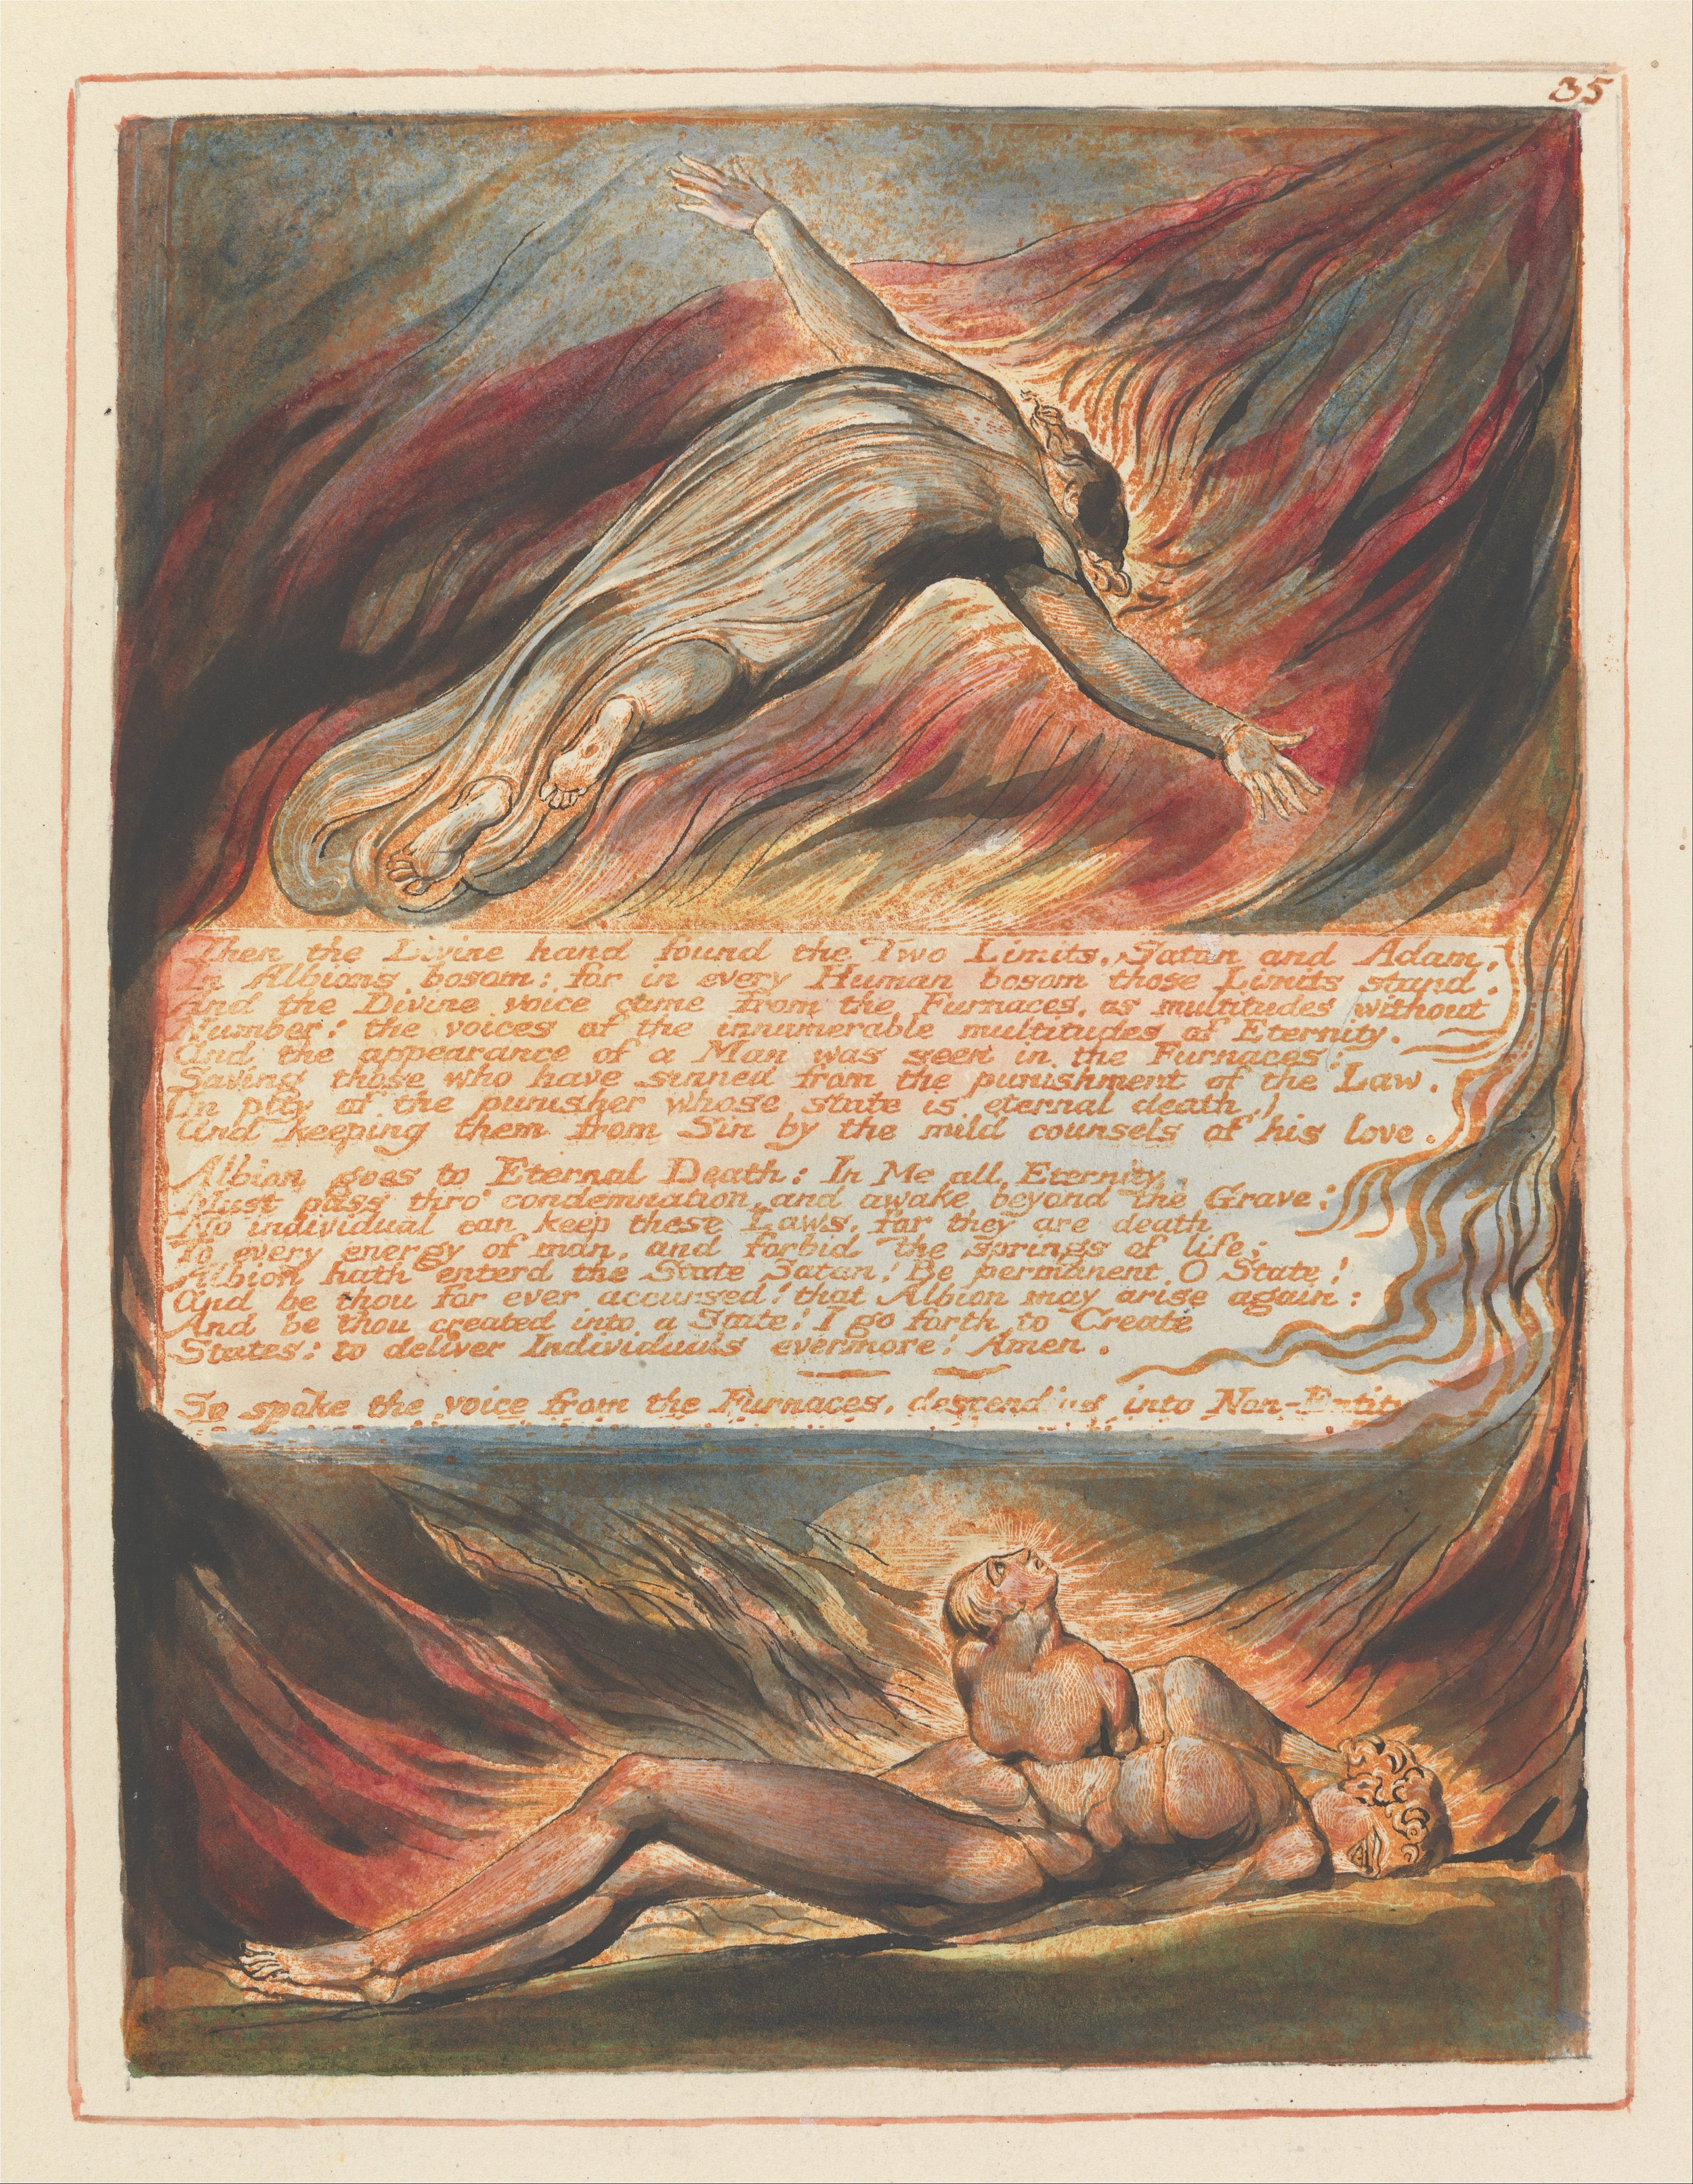 35
Then the Divine hand found the Two Limits, Satan and Adam,
In Albions bosom: for in every Human bosom those Limits stand.
And the Divine voice came from the Furnaces, as multitudes without
Number! the voices of the innumerable multitudes of Eternity.
And the appearance of a Man was seen in the Furnaces:
Saving those who have sinned from the punishment of the Law.
(In pity of the punisher whose state is eternal death,)
And keeping them from Sin by the mild counsels of his love.
Albion goes to Eternal Death: In Me all Eternity.
Must pass thro' condemnation, and awake beyond the Grave!
No individual can keep these Laws, for they are death
To every energy of man, and forbid the springs of life;
Albion hath enterd the State Satan! Be permanent O State!
And be thou for ever accursed! that Albion may arise again:
And be thou created into a State! I go forth to Create
States: to deliver Individuals evermore! Amen.
So spoke the voice from the Furnaces, descending into Non-Entity